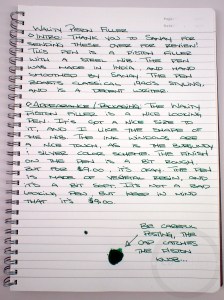 Wality Piston Filler
① Intro: Thank you to Sanjay for
sending these over for review!
This pen is a piston filler
with a steel nib. The pen
was made in India and hand
smoothed by Sanjay. The pen
boasts classical 1940's styling,
and is a decent writer.
② Appearance / Packaging: The Wality
piston filler is a nice looking
pen. It's got a nice size to
it, and I like the shape of
the nib. The ink windows are
a nice touch, as is the burgundy
/ silver color scheme. The finish
on the pen is a bit rough,
but for $9.00, it's okay. The pen
is made of vegetal resin, and
it's a bit soft. It's not a bad
looking pen, but keep in mind
that it's $9.00.
Be careful
posting, the
cap catches
the piston
knob...